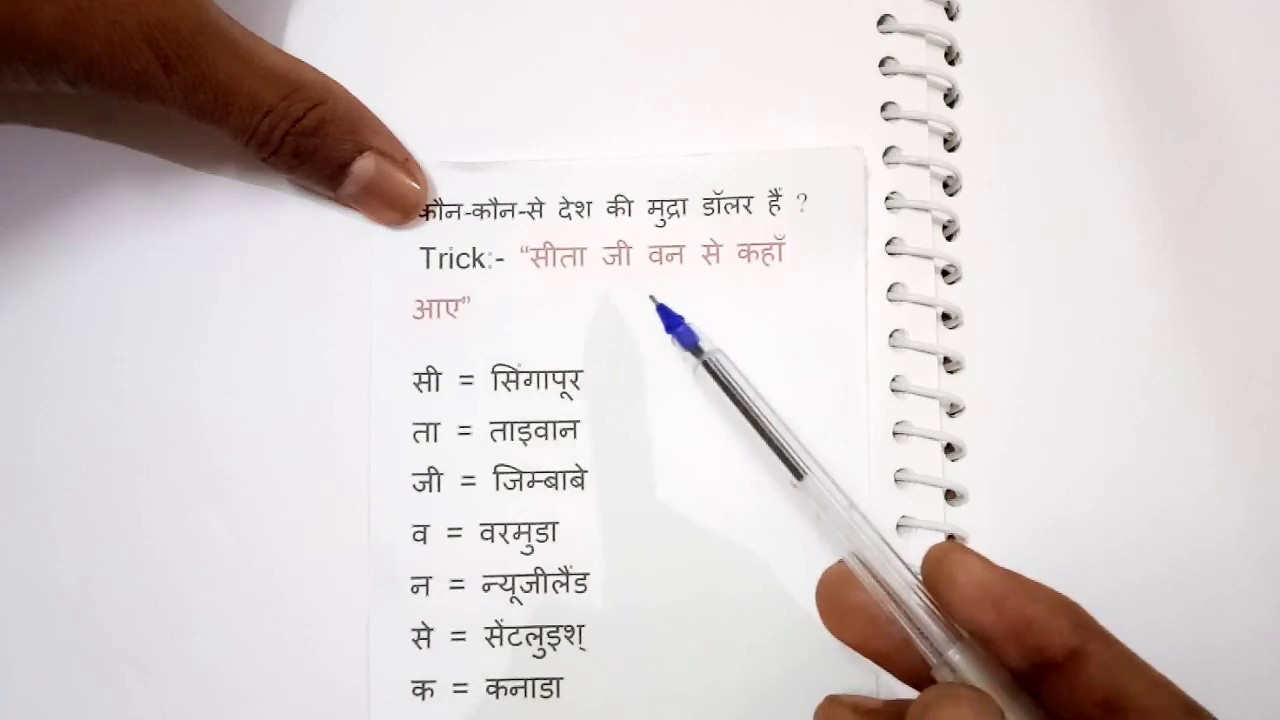 कौन-कौन-से देश की मुद्रा डॉलर हैं ?
Trick:- “सीता जी वन से कहाँ
आए”
सी = सिंगापूर
ता = ताइवान
जी = जिम्बाबे
व = वरमुडा
न = न्यूजीलैंड
से = सेंटलुइश्
क = कनाडा